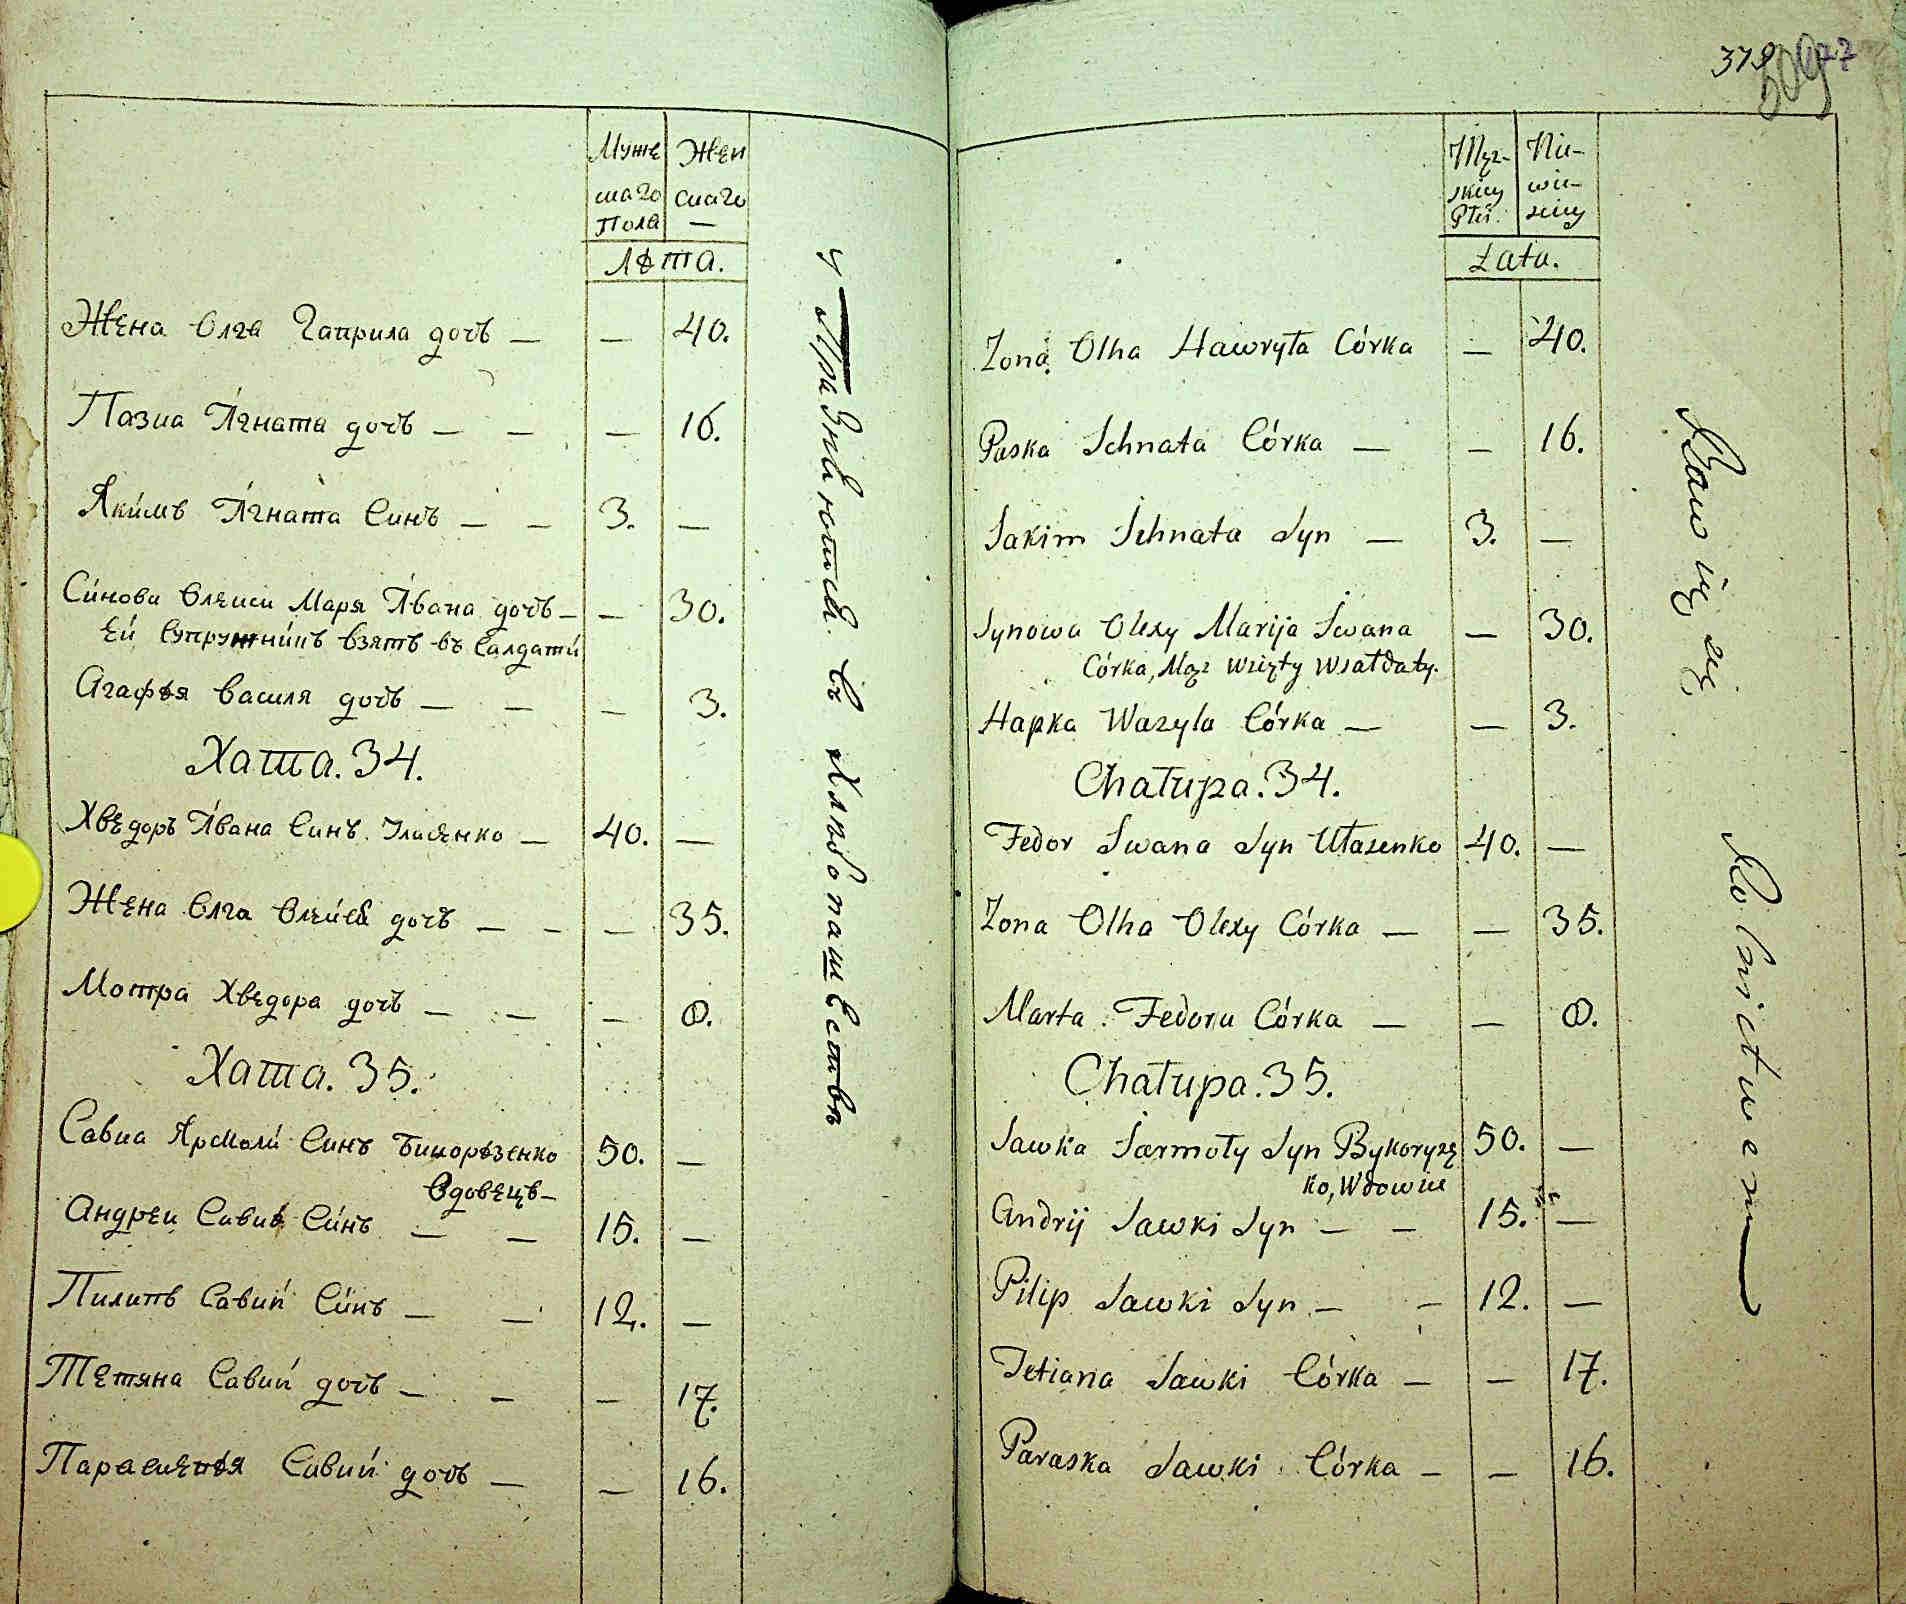 Муже Жен
скаго скаго
Пола —
Лѣта.
Жена Олга Гаврила дочъ — — 40.
Пазка Игната дочъ — — — 16.
Якимъ Игната Синъ — — 3. —
Синова Олекси Маря Ивана дочъ — — 30.
Ей Супружникъ Взятъ въ Салдати
Агафѣя Василя дочъ — — — 3.
Хата. 34.
Хведоръ Ивана Синъ Уласенко — 40. —
Жена Олга Олексѣя дочъ — — — 35.
Мотра Хведора дочъ — — — 0.
Хата. 35.
Савка Ярмоли Синъ Бикорѣзенко 50. —
Вдовецъ —
Андреи Савки Синъ — — 15. —
Пилипъ Савки Синъ — — 12. —
Тетяна Савки дочъ — — — 17.
Параскевѣя Савки дочъ — — 16.
Упражняются въ Хлѣбопашествѣ
379 509 77
Męz- Nie-
skiey wie-
Płci. sciey
Lata.
Zona Olha Hawryła Córka — 40.
Paska Ichnata Córka — — 16.
Jakim Ichnata Syn — 3. —
Synowa Olexy Marija Iwana — 30.
Córka, Mąz wzięty wsałdaty.
Hapka Wazyla Córka — — 3.
Chałupa. 34.
Fedor Iwana Syn Ułasenko 40. —
Zona Olha Olexy Córka — — 35.
Marta Fedora Córka — — 0.
Chałupa. 35.
Sawka Jarmoły Syn Bykoryzę 50. —
ko, Wdowiec
Andrij Sawki Syn — — 15. —
Pilip Sawki Syn — — 12. —
Tetiana Sawki Córka — — 17.
Paraska Sawki Córka — — 16.
Bawią się Rolnictwem